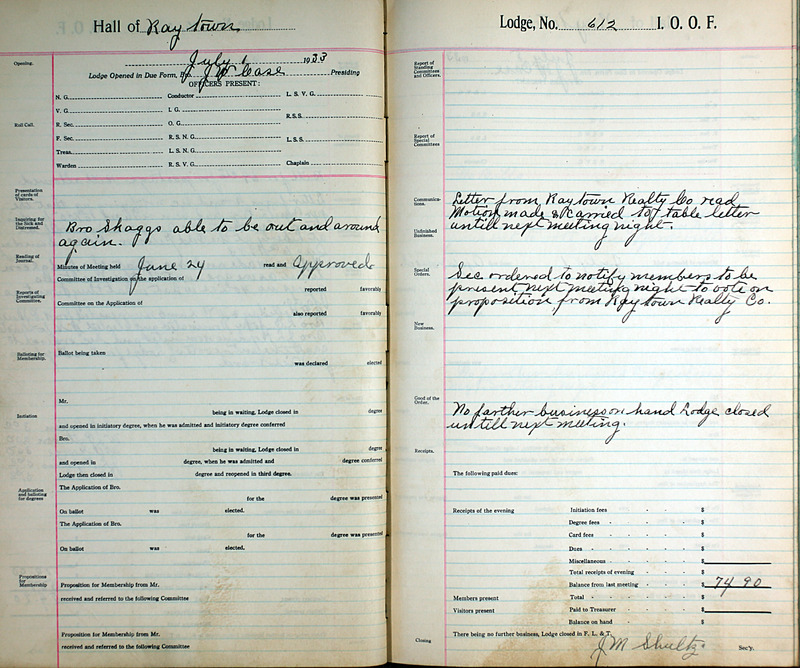 Hall of Raytown
July 1 1933
Opening.
Lodge Opened in Due Form, Bro. J W Case Presiding
OFFICERS PRESENT:
N. G. Conductor L. S. V. G.
V. G. I. G.
R.S.S.
Roll Call.
R. Sec. O. G.
F. Sec. R. S. N. G.
L.S.S.
Treas. L. S. N. G.
Warden R. S. V. G. Chaplain
Presentation of cards of Visitors.
Inquiring for the Sick and Distressed.
Bro Skaggs able to be out and around
again.
Reading of Journal.
Minutes of Meeting held June 24 read and Approved
Committee of Investigation on the application of
reported favorably
Reports of Investigating Committee.
Committee on the Application of
also reported favorably
Balloting for Membership.
Ballot being taken
was declared elected
Mr.
being in waiting, Lodge closed in degree
Initiation
and opened in initiatory degree, when he was admitted and initiatory degree conferred
Bro.
being in waiting, Lodge closed in degree
and opened in degree, when he was admitted and degree conferred
Lodge then closed in degree and reopened in third degree.
Application and balloting for degrees
The Application of Bro.
for the degree was presented
On ballot was elected.
The Application of Bro.
for the degree was presented
On ballot was elected.
Propositions for Membership
Proposition for Membership from Mr.
received and referred to the following Committee
Proposition for Membership from Mr.
received and referred to the following Committee
Lodge, No. 612 I. O. O. F.
Report of Standing Committees and Officers.
Report of Special Committees
Communications.
Letter from Raytown Realty Co read
Motion made & carried to table letter
untill next meeting night.
Unfinished Business.
Special Orders.
Sec ordered to notify members to be
present next meeting night to vote on
proposition from Raytown Realty Co.
New Business.
Good of the Order.
No farther business on hand Lodge closed
untill next meeting.
Receipts.
The following paid dues:
Receipts of the evening Initiation fees $
Degree fees $
Card fees $
Dues $
Miscellaneous $
Total receipts of evening $
Balance from last meeting $ 74 90
Members present Total $
Visitors present Paid to Treasurer $
Balance on hand $
Closing
There being no further business, Lodge closed in F. L. & T.
J M Shultz Sec'y.